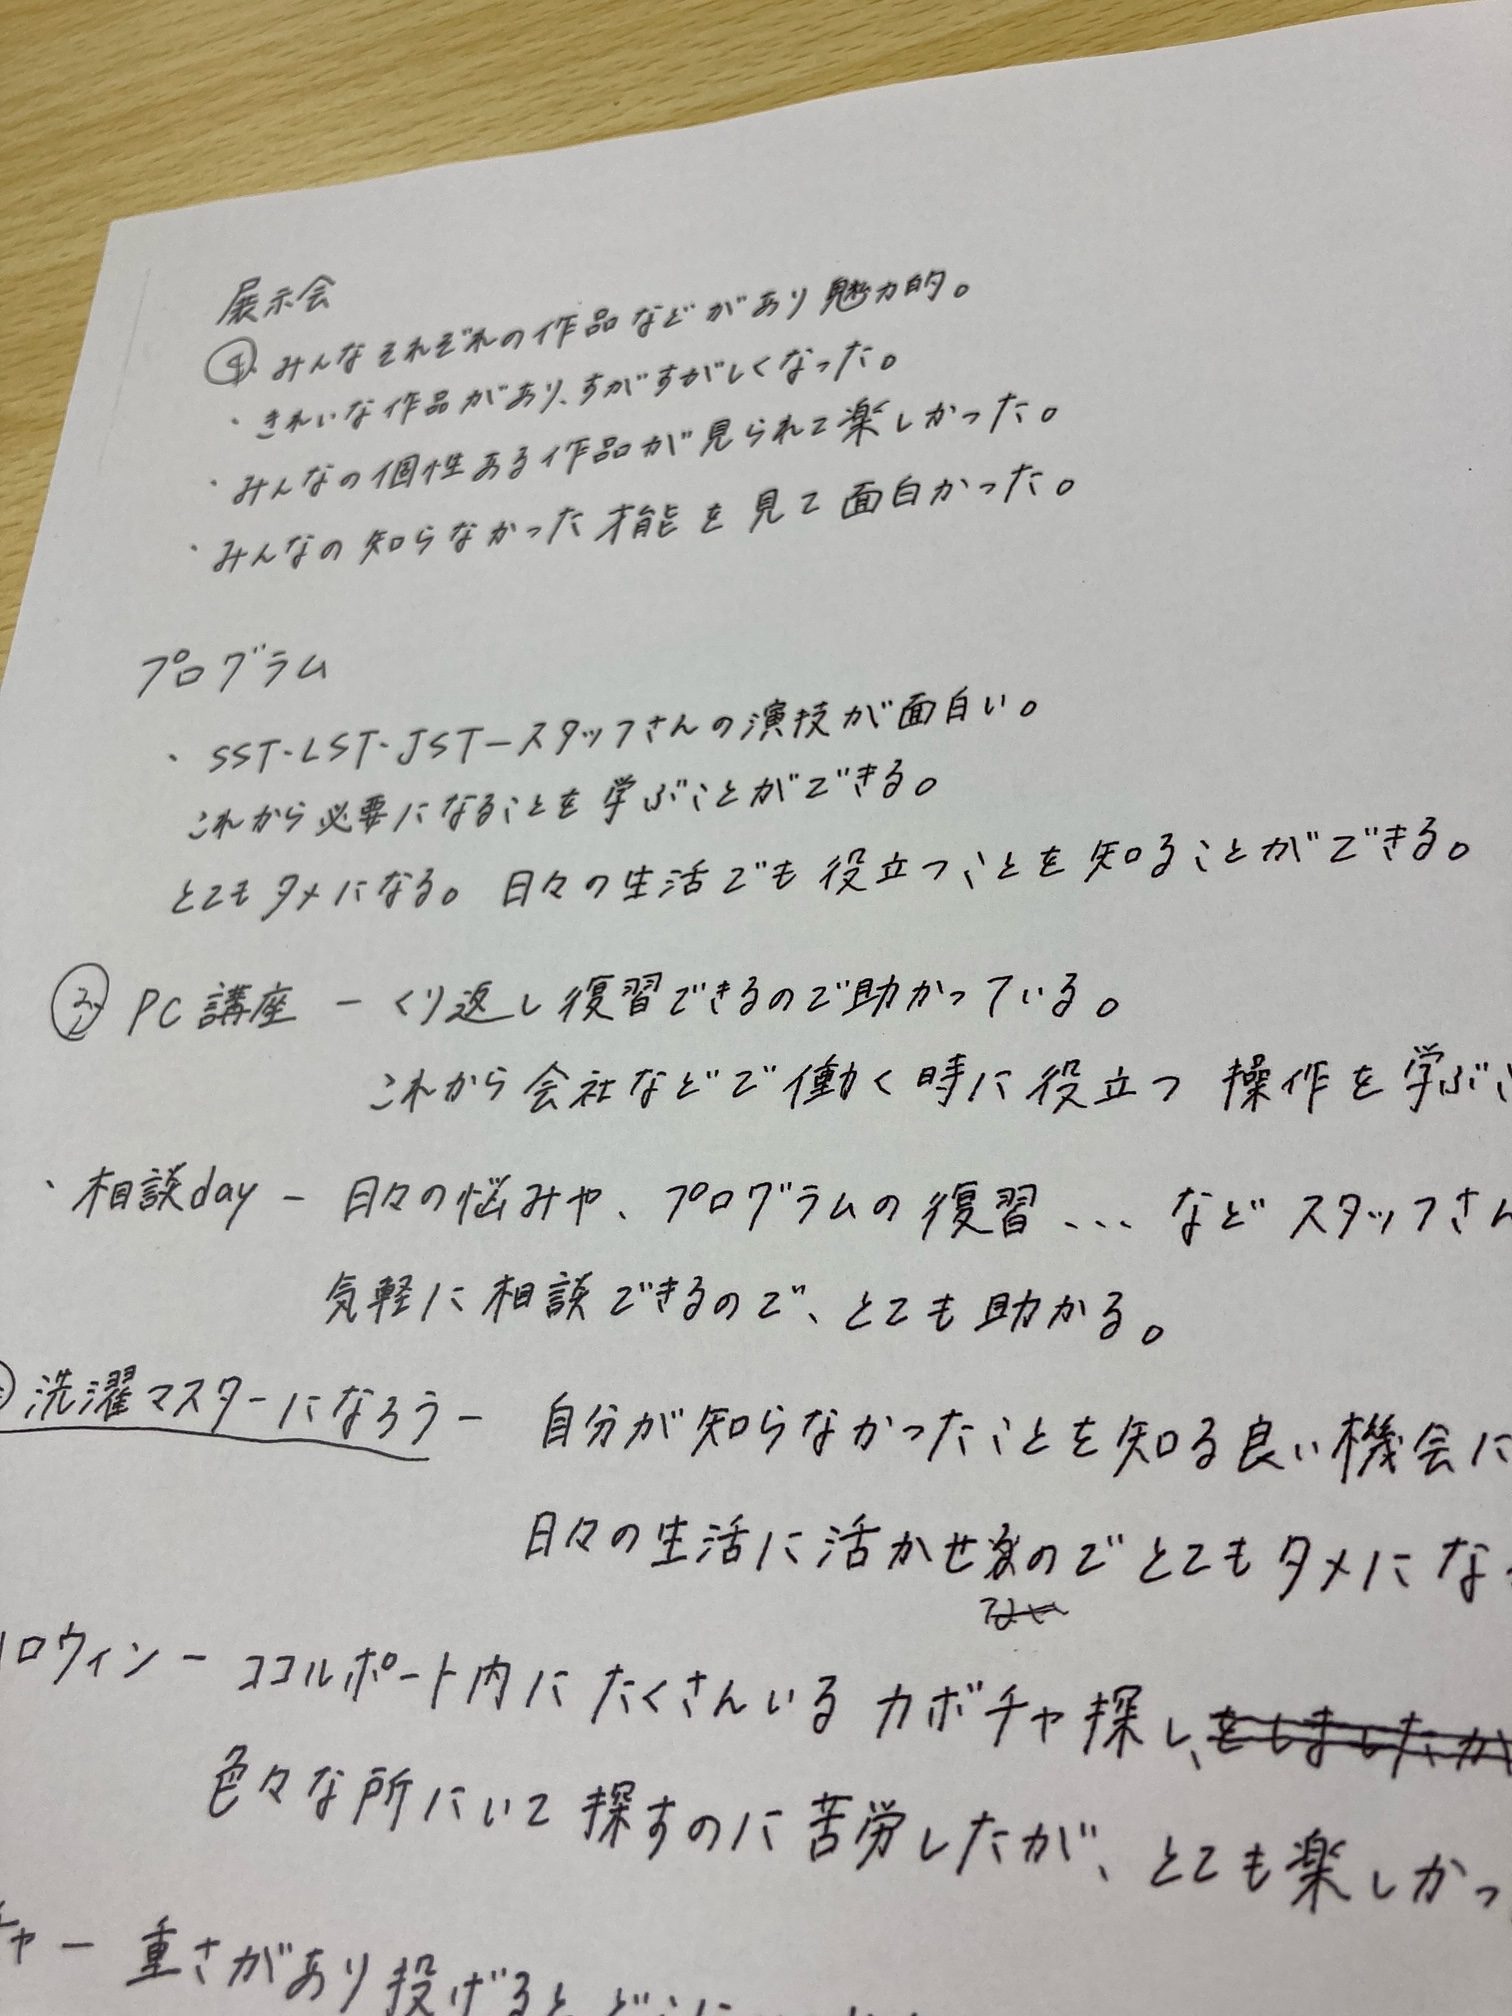 展示会
④・みんなそれぞれの作品などがあり魅力的。
・きれいな作品があり、すがすがしくなった。
・みんなの個性ある作品が見られて楽しかった。
・みんなの知らなかった才能を見て面白かった。
プログラム
・SST・LST・JSTースタッフさんの演技が面白い。
これから必要になることを学ぶことができる。
とてもタメになる。日々の生活でも役立つことを知ることができる。
PC講座 ー くり返し復習できるので助かっている。
これから会社などで働く時に役立つ 操作を学ぶ
・相談day ー 日々の悩みや、プログラムの復習、...などスタッフさん
気軽に相談できるので、とても助かる。
洗濯マスターになろう ー 自分が知らなかったことを知る良い機会に
日々の生活に活かせるのでとてもタメにな
ロウィン ー ココルポート内にたくさんいるカボチャ探し、をしましたが
色々な所にいて探すのに苦労したが、とても楽しかっ
チャ ー 重さがあり投げると